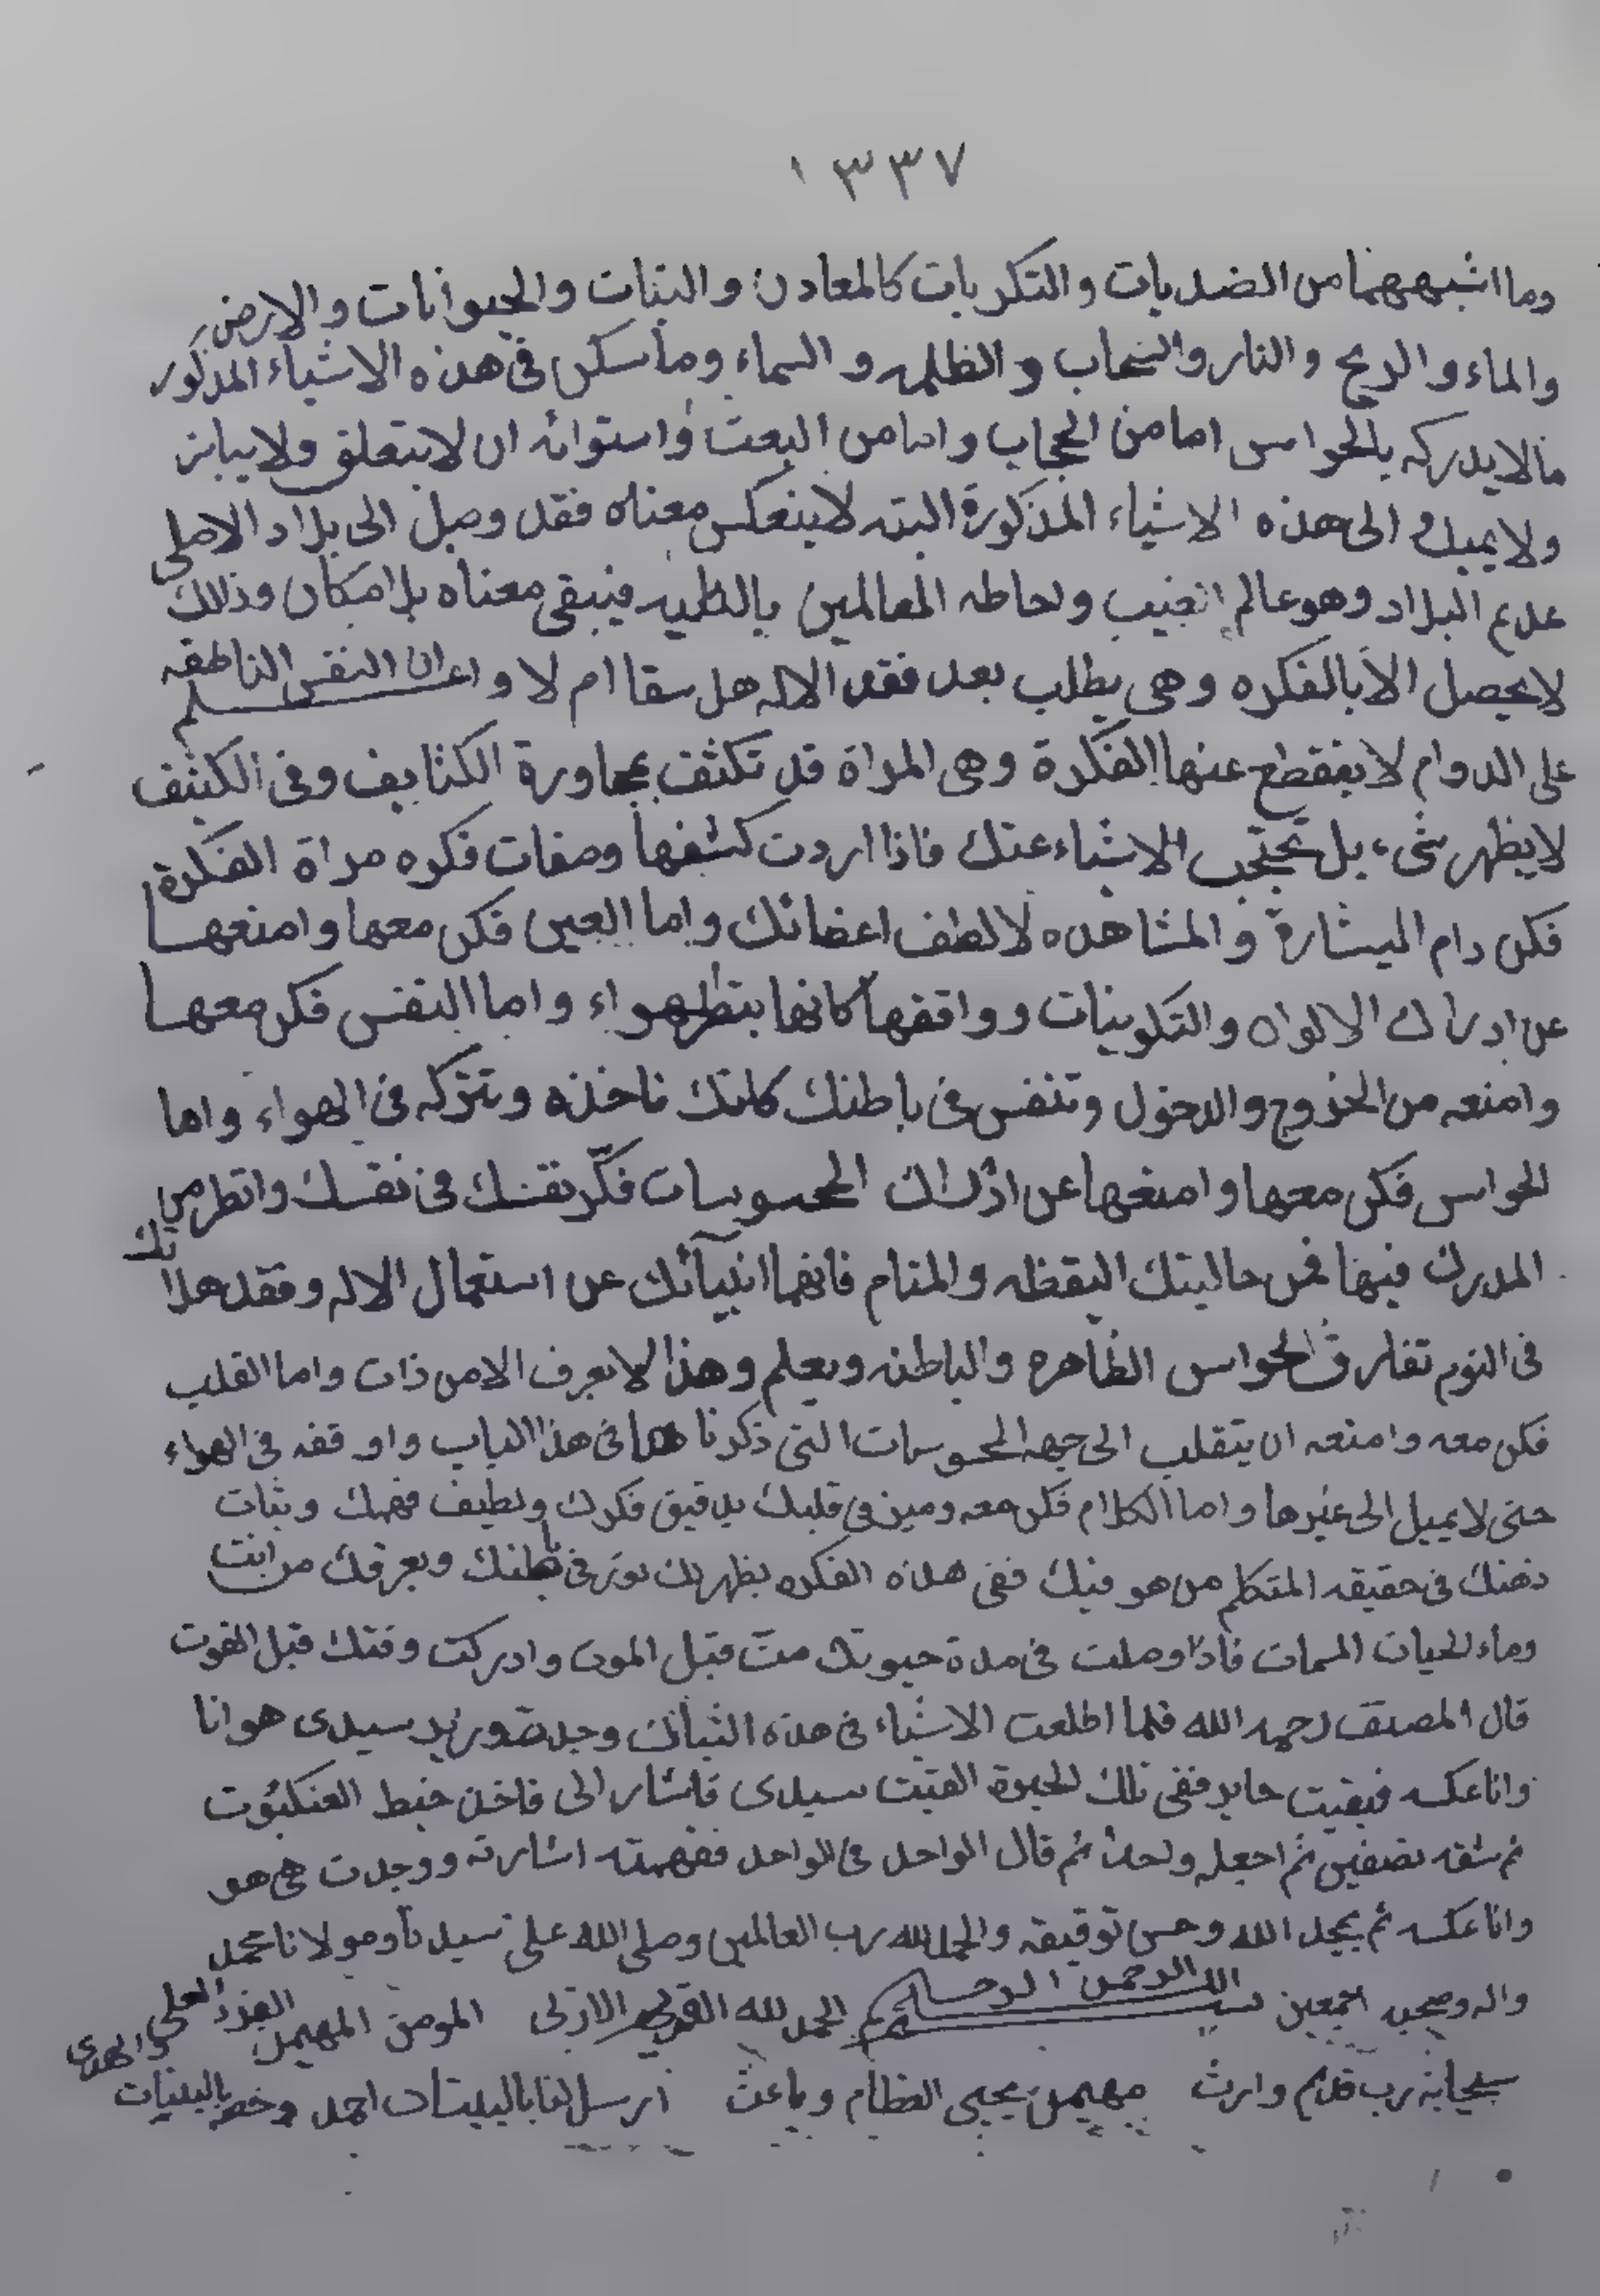 ١٣٣٧
وما اشبههما من الضديات والتكريات كالمعادن والنبات والحيوانات والارض
والماء والريح والنار والسحاب والظلمه والسماء وما سكن فى هذه الاشياء المذكور
مالا يدركه بالحواس اما من الحجاب واما من البعث واستوائه ان لا يتعلق ولا يباين
ولا يميل الى هذه الاشياء المذكورة البته لا ينعكس معناه فقد وصل الى بلاد الاصلى
عديم البلاد وهو عالم الغيب واحاطه العالمين فيبقى معناه بلا امكان وذلك
لا يحصل الا بالفكره وهى يطلب بعد فقد الاله هل سقا ام لا واعلم ان النفس الناطقه
على الدوام لا ينقطع عنها الفكرة وهى المراة قد تكثف بمجاورة الكثايف وفى الكثيف
لا يظهر شىء بل تحتجب الاشياء عنك فاذا اردت كشفها وصفات فكره مراة الفكرة
فكن دام اليشارة والمشاهده لالطف اعضائك واما العين فكن معها وامنعها
عن ادراك الالوان والتكوينات وواقفها كانها بنظر هواء واما النفس فكن معها
وامنعه من الخروج والدخول وتنفس فى باطنك كانك تاخذه وتتركه فى الهواء واما
الحواس فكن معها وامنعها عن ادراك المحسوسات فكّر نفسك فى نفسك وانظر من
المدرك فيها فمن حاليتك اليقظه والمنام فانهما انبيآئك عن استعمال الاله وفقد هذا تك
فى النوم تفارق الحواس الظاهره والباطنه ويعلم وهذا لا يعرف الا من ذات واما القلب
فكن معه وامنعه ان يتقلب الى جهه المحسوسات التى ذكرنا هذا فى هذا الباب واوقفه فى الهواء
حتى لا يميل الى غيرها واما الكلام فكن معه وميز فى قلبك بدقيق فكرك ولطيف فهمك وثبات
ذهنك فى حقيقه المتكلم من هو فيك ففى هذه الفكره يظهر لك نور فى باطنك ويعرفك من انت
وماء الحيات الممات فاذا وصلت فى مدة حيوتك مت قبل الموت وادركت وقتك قبل الفوت
قال المصنف رحمه الله فلما اطلعت الاشياء فى هذه الثبات وجدت سيدى هو انا
وانا عكسه فبقيت حاير ففى تلك الحيوة القيت سيدى فاشار الى فاخذ خيط العنكبوت
ثم شقه نصفين ثم اجعله واحدا ثم قال الواحد فى الواحد ففهمته اشارته ووجدت هى هو
وانا عكسه ثم بحمد الله وحسن توفيقه والحمد لله رب العالمين وصلى الله على سيدنا ومولانا محمد
واله وصحبه اجمعين بسم الله الرحمن الرحيم الحمد لله القديم الازلى المومن المهيمن الفرد العلى
سبحانه رب قديم وارث مهيمن يحيى العظام وباعث ارسل لنا احمد بالبينات